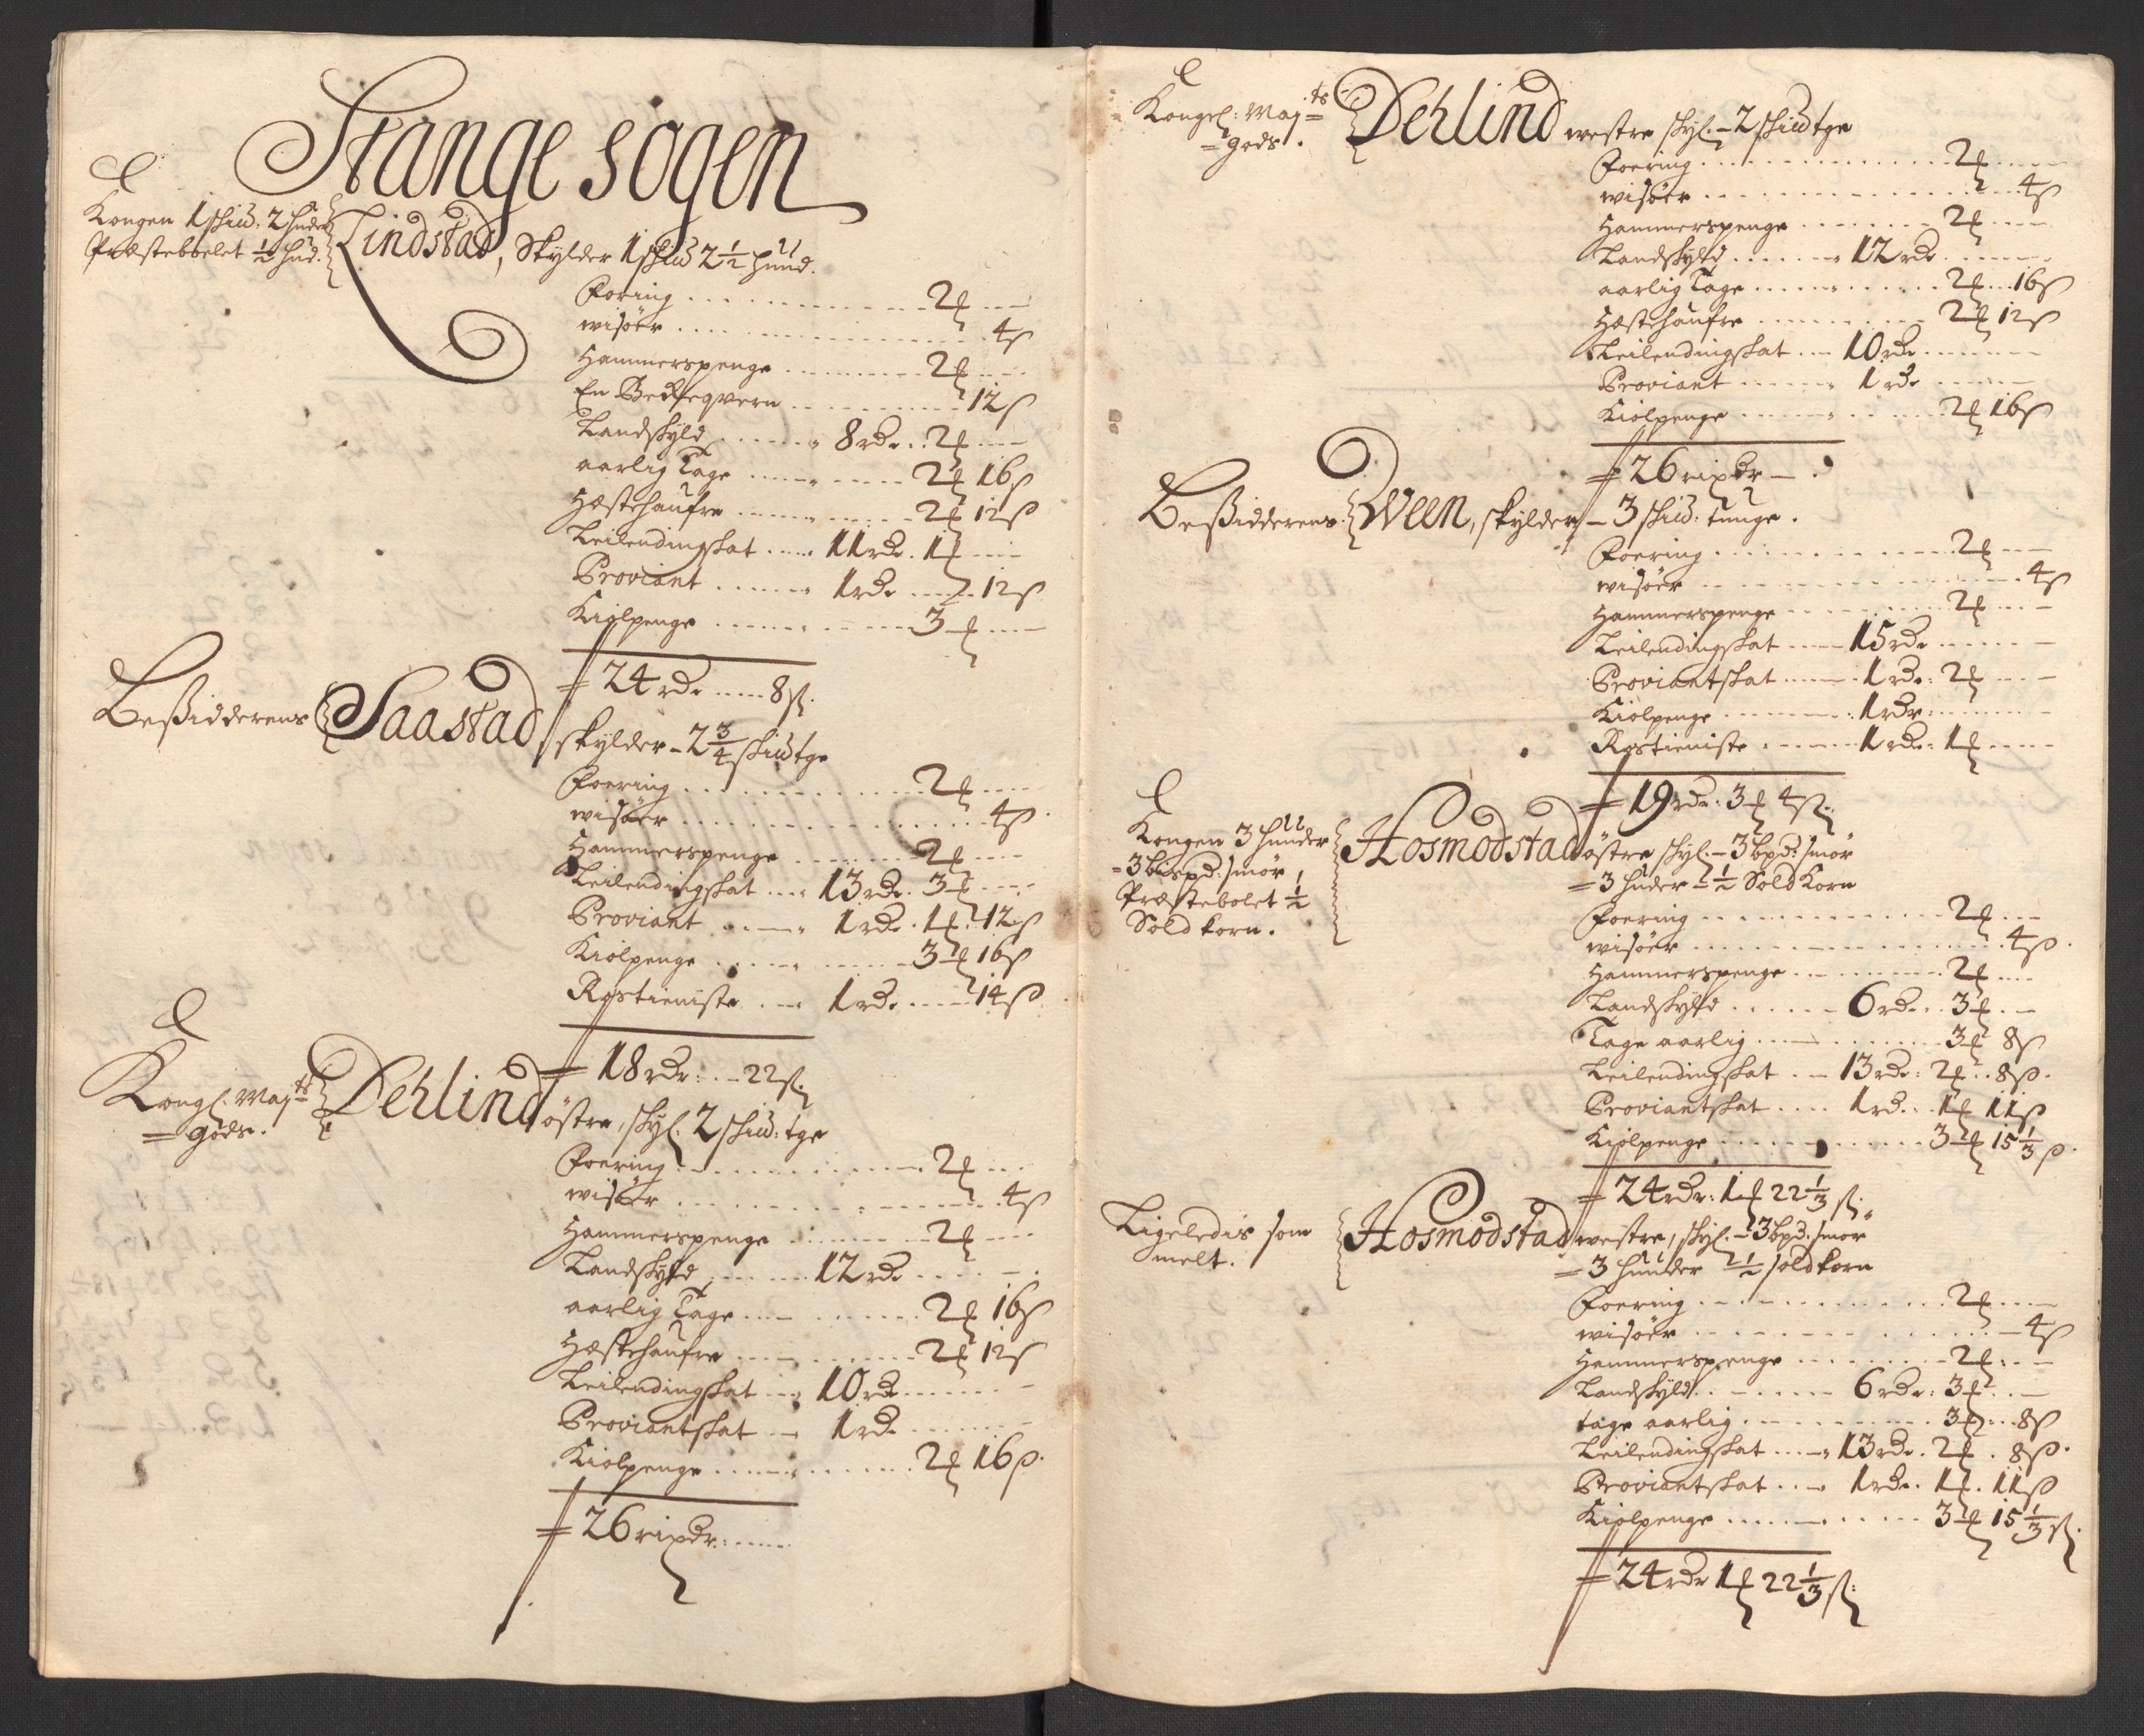 Stange sogen
Kongen 1 skiud: 2 huder
Præstebolet ½ hud.
Lindstad, Skylder 1 skiud 2½ hund.
Foring 2 ort
wisöer 4 s
Hammerspenge 2 ort
En Beckeqvern 12 s
Landskyld 8 rdr 2 ort
aarlig Tage 2 ort 16 s
Hæstehaufre 2 ort 12 s
Leilendingskat 11 rdr 1 ort
Proviant 1 rdr 12 s
Kiölpenge 3 ort
24 rdr 8 s.
Beßidderens Saastad skylder - 2¾ skiud tge
Foering 2 ort
wisöer 4 s
Hammerspenge 2 ort
Leilendingskat 13 rdr. 3 ort
Proviant 1 rdr. 1 ort. 12 s
Kiölpenge 3 ort 16 s
Rostieniste 1 rdr 14 s
18 rdr: 22 s.
Kongl. Mayts
gods.
Dehlind östre, skyl. 2 skiud: tge
Foering 2 ort
wisöer 4 s
Hammerspenge 2 ort
Landskyld 12 rdr
aarlig Tage 2 ort 16 s
Hæstehaufre 2 ort 12 s
Leilendingskat 10 rdr
Proviantskat 1 rdr
Kiölpenge 2 ort 16 s.
26 rixdr:
Kongel: Mayts
gods.
Dehlind westre skyl. - 2 skiud tge
Foering 2 ort
wisöer 4 s
Hammerspenge 2 ort
Landskyld 12 rdr
aarlig Tage 2 ort 16 s
Hæstehaufre 2 ort 12 s
Leilendingskat 10 rdr
Proviant 1 rdr
Kiölpenge 2 ort 16 s
26 rixdr
Beßidderens Ween, skylder - 3 skiud: tunge.
Foering 2 ort
wisöer 4 s
Hammerspenge 2 ort
Leilendingskat 15 rdr
Proviantskat 1 rdr: 2 ort
Kiölpenge 1 rdr
Rostieniste 1 rdr: 1 ort
19 rdr: 3 ort 4 s.
Kongen 3 hunder
3 bispd: smör,
Præstebolet ½
Sold korn.
Hosmodstad östre skyl. - 3 bpd: smör
3 huder ½ Sold Korn
Foering 2 ort
wisöer 4 s.
Hammerspenge 2 ort
Landskyld 6 rdr 3 ort
Tage aarlig 3 ort 8 s
Leilendingskat 13 rdr: 2 ort 8 s.
Proviantskat 1 rd. 1 ort 11 s
Kiölpenge 3 ort 15⅓ s.
24 rdr: 1 ort 22⅓ s.
Ligeledis som
melt.
Hosmodstad westre, skyl. - 3 bpd: smör
3 hunder ½ sold korn
Foering 2 ort
wisöer 4 s
Hammerspenge 2 ort
Landskyld 6 rdr: 3 ort
tage aarlig 3 ort 8 s
Leilendingskat 13 rdr. 2 ort. 8 s.
Proviantskat 1 rdr. 1 ort. 11 s
Kiölpenge 3 ort 15⅓ s.
24 rdr 1 ort 22⅓ s.